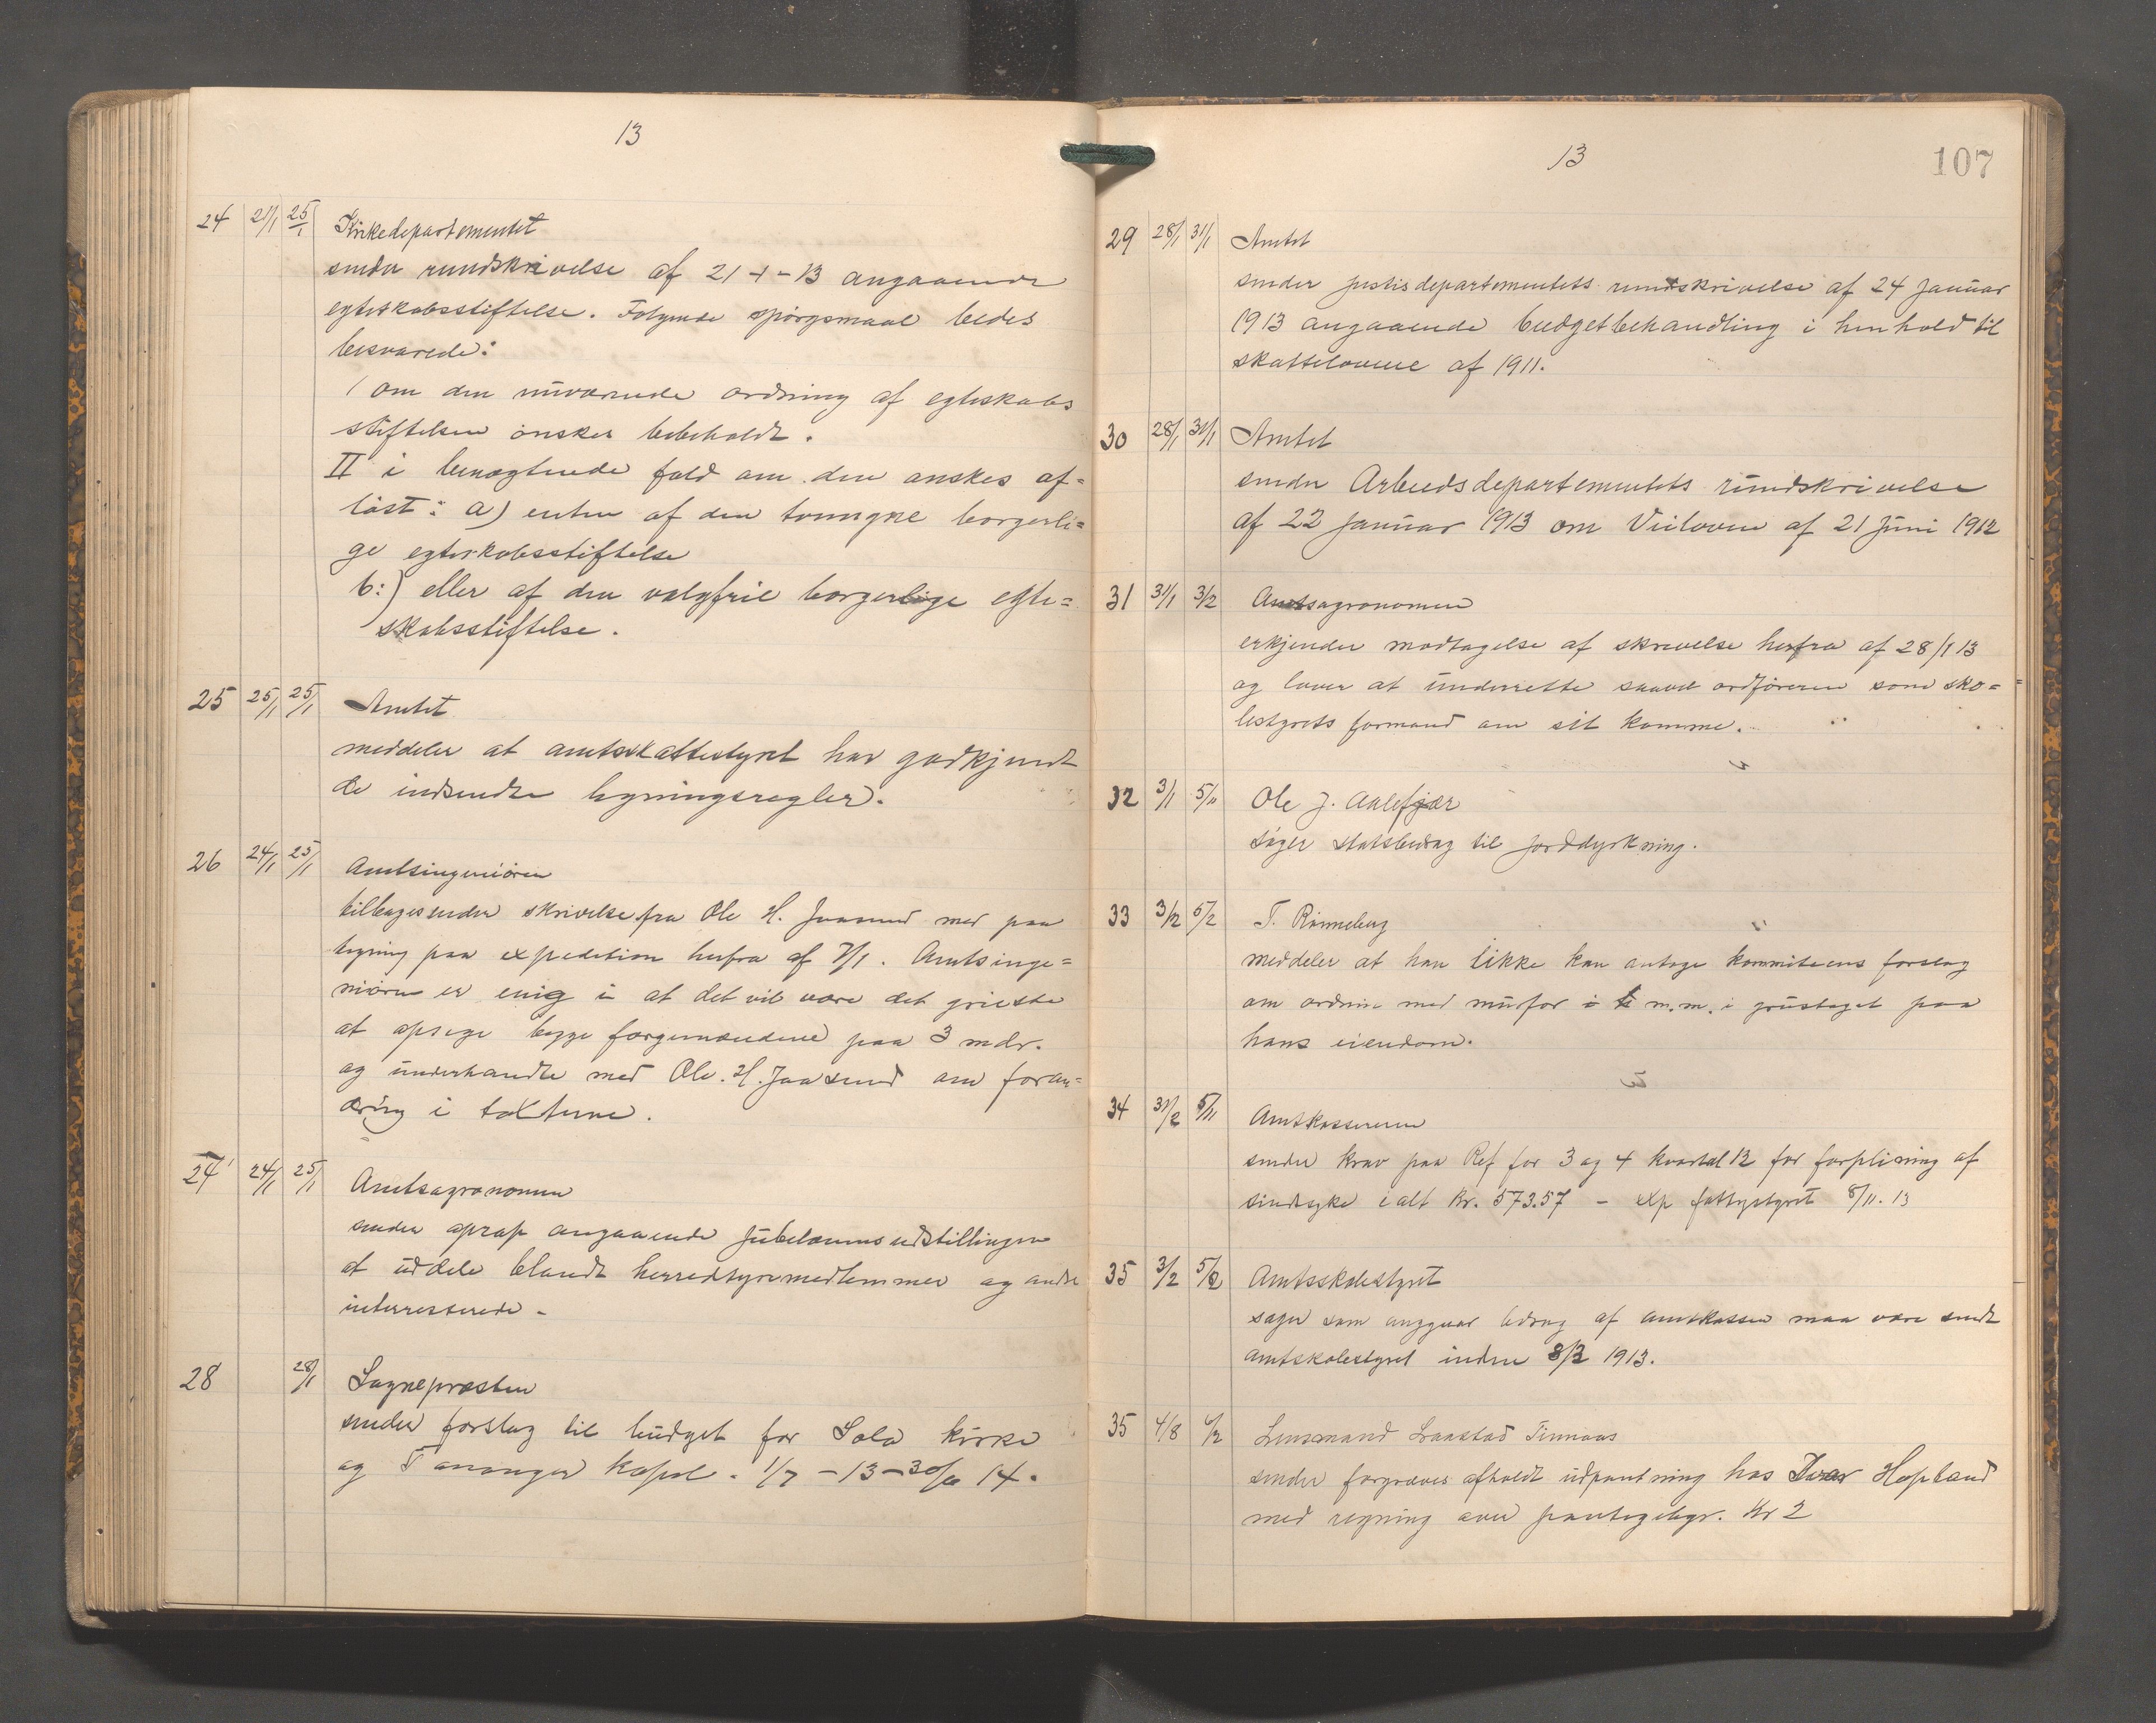 13
24 21/1 25/1 Kirkedepartementet
sender rundskrivelse af 21-1-13 angaaende
egteskabsstiftelse. Følgende spörgsmaal bedes
besvarede:
I om den nuværende ordning af egteskabs
stiftelsen önskes bebeholdt.
II i benægtende fald om den ønskes af=
löst: a) enten af den tvungne borgerli=
ge egteskabsstiftelse
b:) eller af den valgfrie borgerlige egte=
skabsstiftelse.
25 25/1 25/1 Amtet
meddeler at amtsskattestyret har godkjendt
de indsendte ligningsregler.
26 24/1 25/1 Amtsingeniören
tilbagesender skrivelse fra Ole H. Jaasund med paa
tegning paa expedition herfra af 7/1. Amtsinge=
niören er enig i at det vil være det grieste
at opsige begge forgemændene paa 3 mdr.
og underhandle med Ole. H. Jaasund om foran=
dring i takterne.
24 24/1 25/1 Amtsagronomen
sender oprop angaaende Jubelæumsudstillingen
at uddele blandt herredstyremedlemmer og andre
interresserede -
28 28/1 Sognepræsten
sender forslag til budget for Sola kirke
og Tananger kapel. 1/7 - 13 - 30/6 14.
13
107
29 28/1 31/1 Amtet
sender justisdepartementets rundskrivelse af 24 Januar
1913 angaaende budgetbehandling i henhold til
skattelovene af 1911.
30 28/1 31/1 Amtet
sender Arbeidsdepartementets rundskrivelse
af 22 Januar 1913 om Veiloven af 21 Juni 1912
31 31/1 3/2 Amtsagronomen
erkjender modtagelse af skrivelse herfra af 28/1 13
og lover at underrette saavel ordföreren som sko=
lestyrets formand om sit komme.
32 3/1 5/11 Ole J. Aalefjær
söger statsbidrag til jorddyrkning.
33 3/2 5/2 T. Rönneberg
meddeler at han ikke kan antage kommiteens forslag
om ordning med murfor m.m. i grustaget paa
hans eiendom.
34 31/2 5/11 Amtkassereren
sender krav paa Ref for 3 og 4 kvartal 12 for forpleining af
sindsyke ialt Kr. 573.57 - exp fattigstyret 8/11. 13
35 3/2 5/2 Amtsskolestyret
sager som angaar bidrag af amtskassen maa være sendt
amtskolestyret inden 8/3 1913.
35 4/8 6/2 Lensmand Laastad Finnaas
sender forgjæves afholdt udpantning hos Ivar Hopland
med regning over pantegebyr. Kr 2